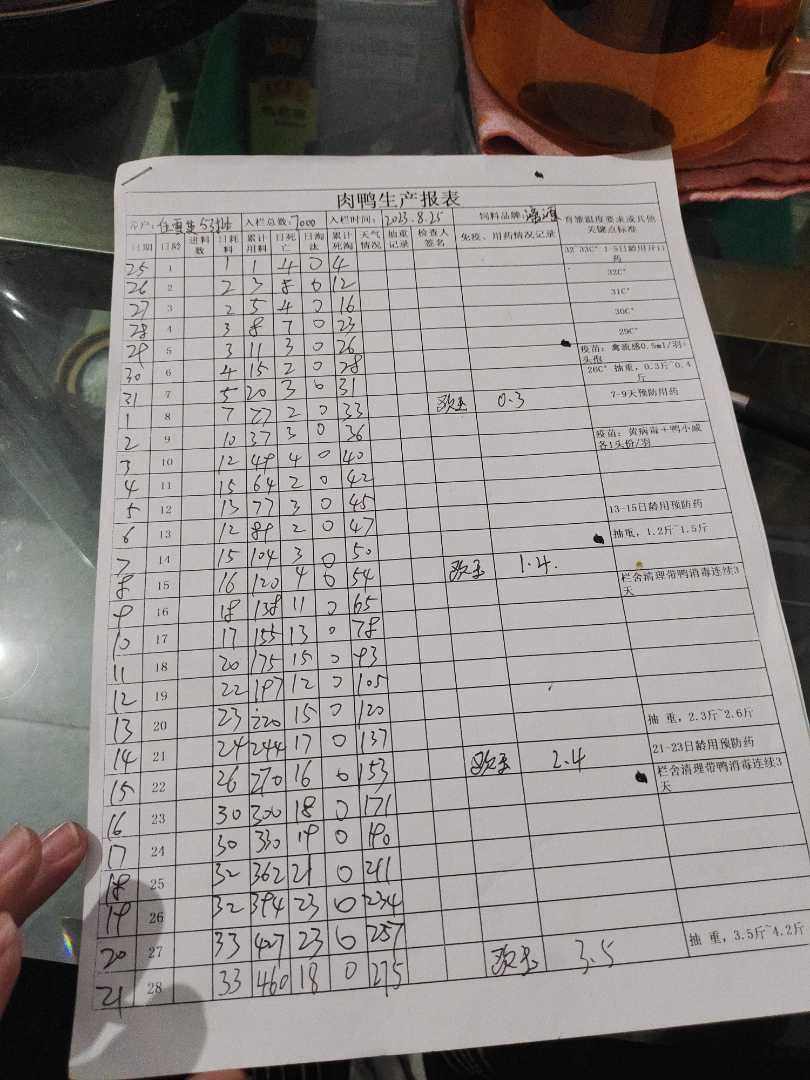 肉鸭生产报表
入栏总数:7000 入栏时间: 2023.8.25 饲料品牌: 育雏温度要求或其他关键点标准
日期 日龄 进料数 日耗料 累计用料 日死亡 日淘汰 累计死淘 天气情况 抽重记录 检查人签名 免疫、用药情况记录
25 1 1 1 4 0 4 32~33C° 1-5日龄用开口药
26 2 2 3 8 0 12 32C°
27 3 2 5 4 0 16 31C°
28 4 3 8 7 0 23 30C°
29 5 3 11 3 0 26 29C°
30 6 4 15 2 0 28 疫苗：禽流感0.5ml/羽+头孢
31 7 5 20 3 0 31 26C° 抽重，0.3斤~0.4斤
1 8 7 27 2 0 33 0.3 7-9天预防用药
2 9 10 37 3 0 36
3 10 12 49 4 0 40 疫苗：黄病毒+鸭小减各1头份/羽
4 11 15 64 2 0 42
5 12 13 77 3 0 45
6 13 12 89 2 0 47 13-15日龄用预防药
7 14 15 104 3 0 50 抽重，1.2斤~1.5斤
8 15 16 120 4 0 54 1.4.
9 16 18 138 11 0 65 栏舍清理带鸭消毒连续3天
10 17 17 155 13 0 78
11 18 20 175 15 0 93
12 19 22 197 12 0 105
13 20 23 220 15 0 120
14 21 24 244 17 0 137 抽 重，2.3斤~2.6斤
15 22 26 270 16 0 153 2.4 21-23日龄用预防药
16 23 30 300 18 0 171 栏舍清理带鸭消毒连续3天
17 24 30 330 19 0 190
18 25 32 362 21 0 211
19 26 32 394 23 0 234
20 27 33 427 23 0 257
21 28 33 460 18 0 275 3.5 抽 重，3.5斤~4.2斤